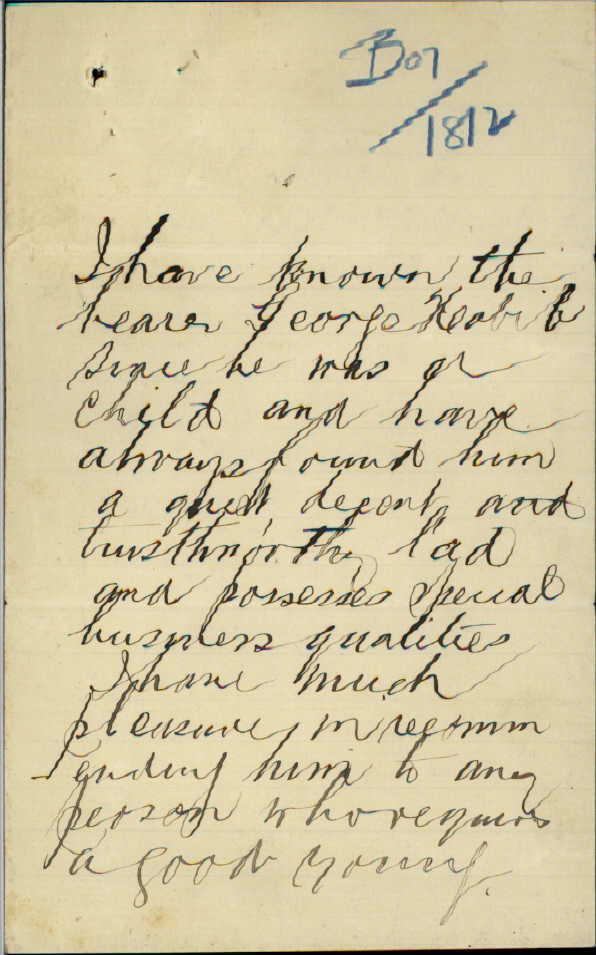 Boy
1812
I have known the
bearer George
since he was a
child and have
always found him
a quiet, decent, and
trustworthy lad
and possesses special
business qualities
I have much
pleasure in recomm
ending him to any
person who requires
a good young